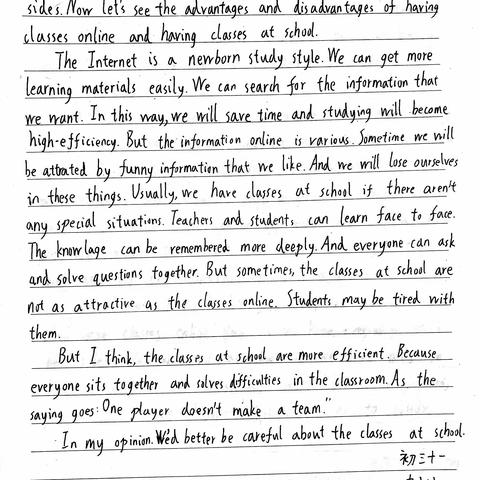 sides. Now let's see the advantages and disadvantages of having
classes online and having classes at school.
The Internet is a newborn study style. We can get more
learning materials easily. We can search for the information that
we want. In this way, we will save time and studying will become
high-efficiency. But the information online is various. Sometime we will
be attrated by funny information that we like. And we will lose ourselves
in these things. Usually, we have classes at school if there aren't
any special situations. Teachers and students can learn face to face.
The knowlage can be remembered more deeply. And everyone can ask
and solve questions together. But sometimes, the classes at school are
not as attractive as the classes online. Students may be tired with
them.
But I think, the classes at school are more efficient. Because
everyone sits together and solves difficulties in the classroom. As the
saying goes: One player doesn't make a team."
In my opinion. We'd better be careful about the classes at school.
初三十一